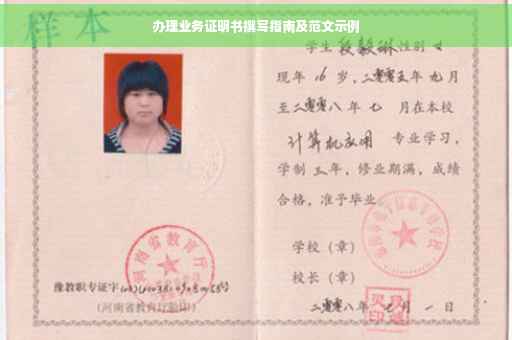 办理业务证明书撰写指南及范文示例
样本
学生 段毅琳 性别 女
现年 16 岁,二零零五年 九 月
至二零零八年 七 月在本校
计算机应用 专业学习,
学制 三 年,修业期满,成绩
合格,准予毕业。
学校(章)
校长(章)
二零零八年 七 月 一 日
河南省教育厅
豫教职专证字
(河南省教育厅验印)